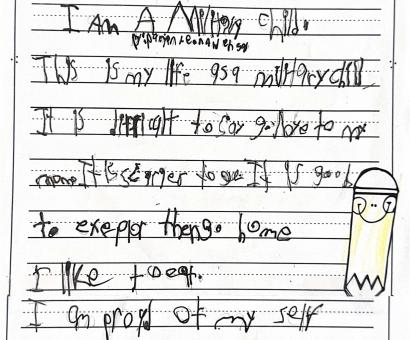 I Am A Military Child.
This is my life as a military child
It is difficult to say goodbye to my
mom. It is scarier to It is good
to explor then go home
I like to eat.
I am proyd of my self